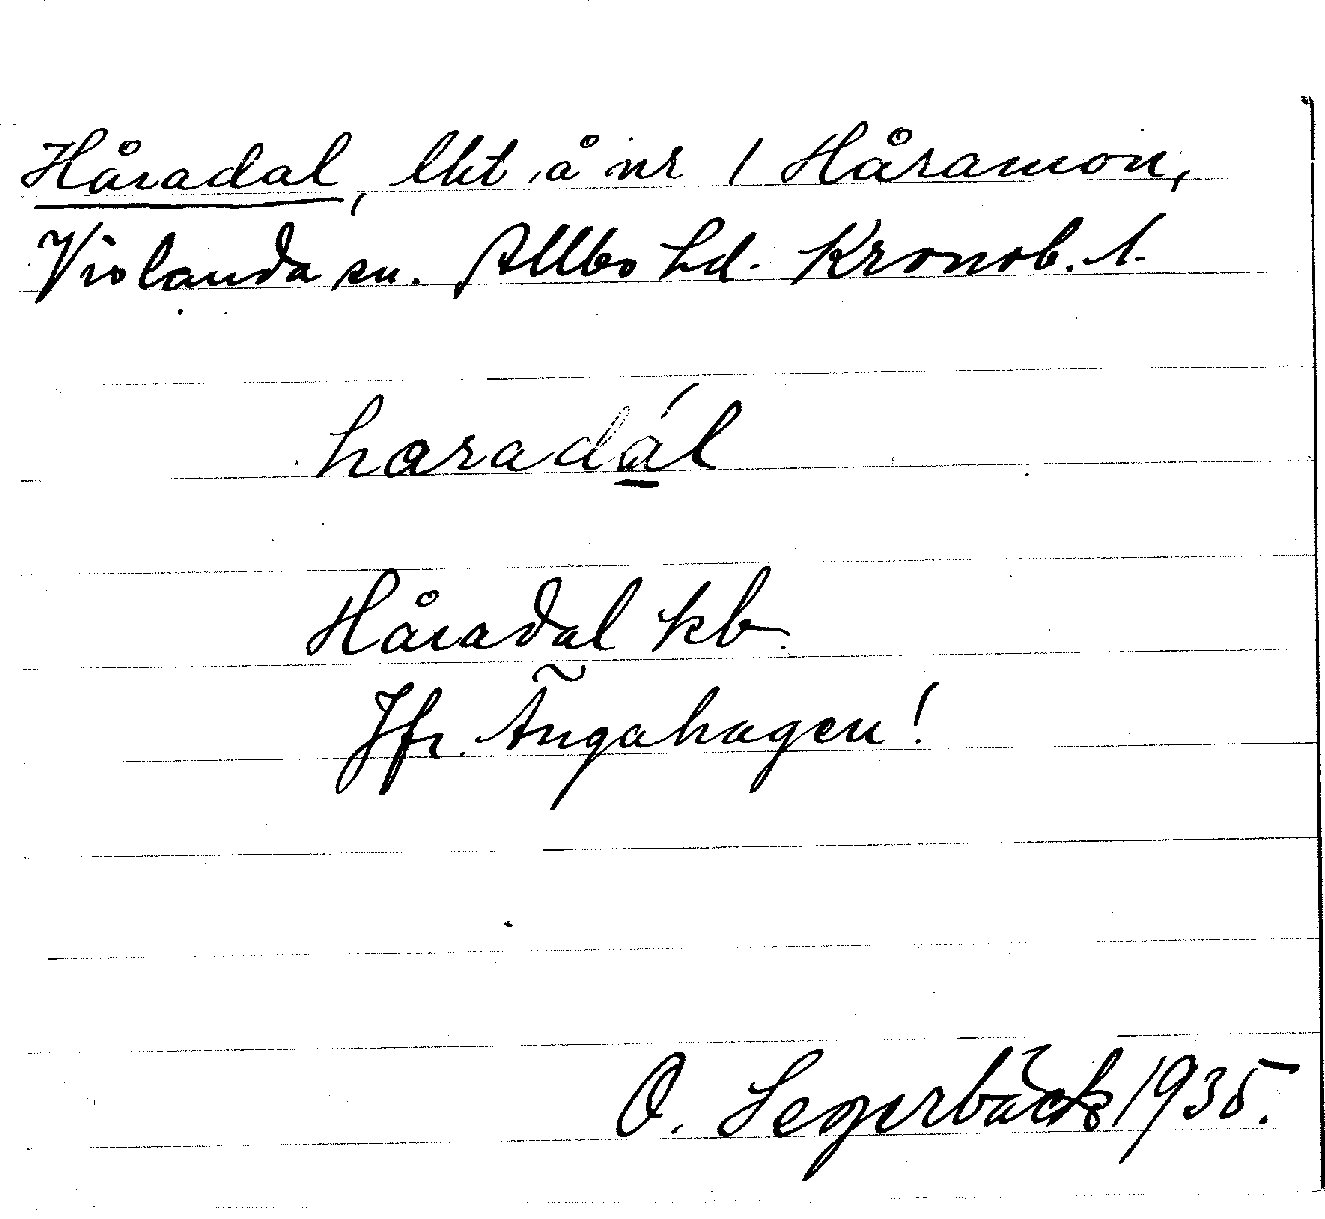 Håradal, lht å nr 1 Håramon,
Vislanda sn. Allbo hd. Kronob. l.
haradál
Håradal kb.
Jfr. Ängahagen!
O. Segerbäck 1935.